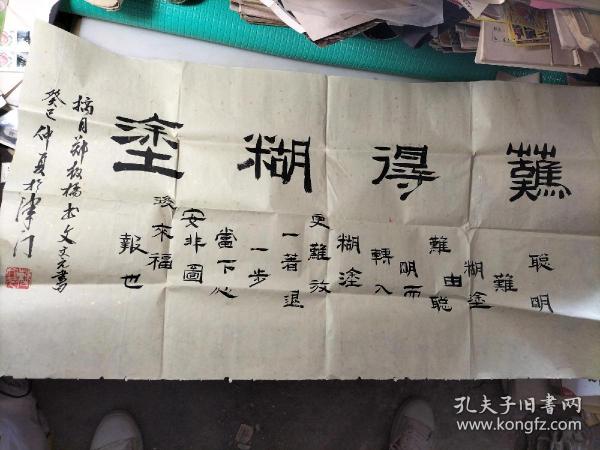 難得糊塗
聰明
難
糊塗
難由聰
明而
轉入
糊塗
更難放
一著退
一步
當下心
安非圖
後來福
報也
摘自鄭板橋書文
癸巳仲夏於津门
孔夫子旧书网
www.kongfz.com